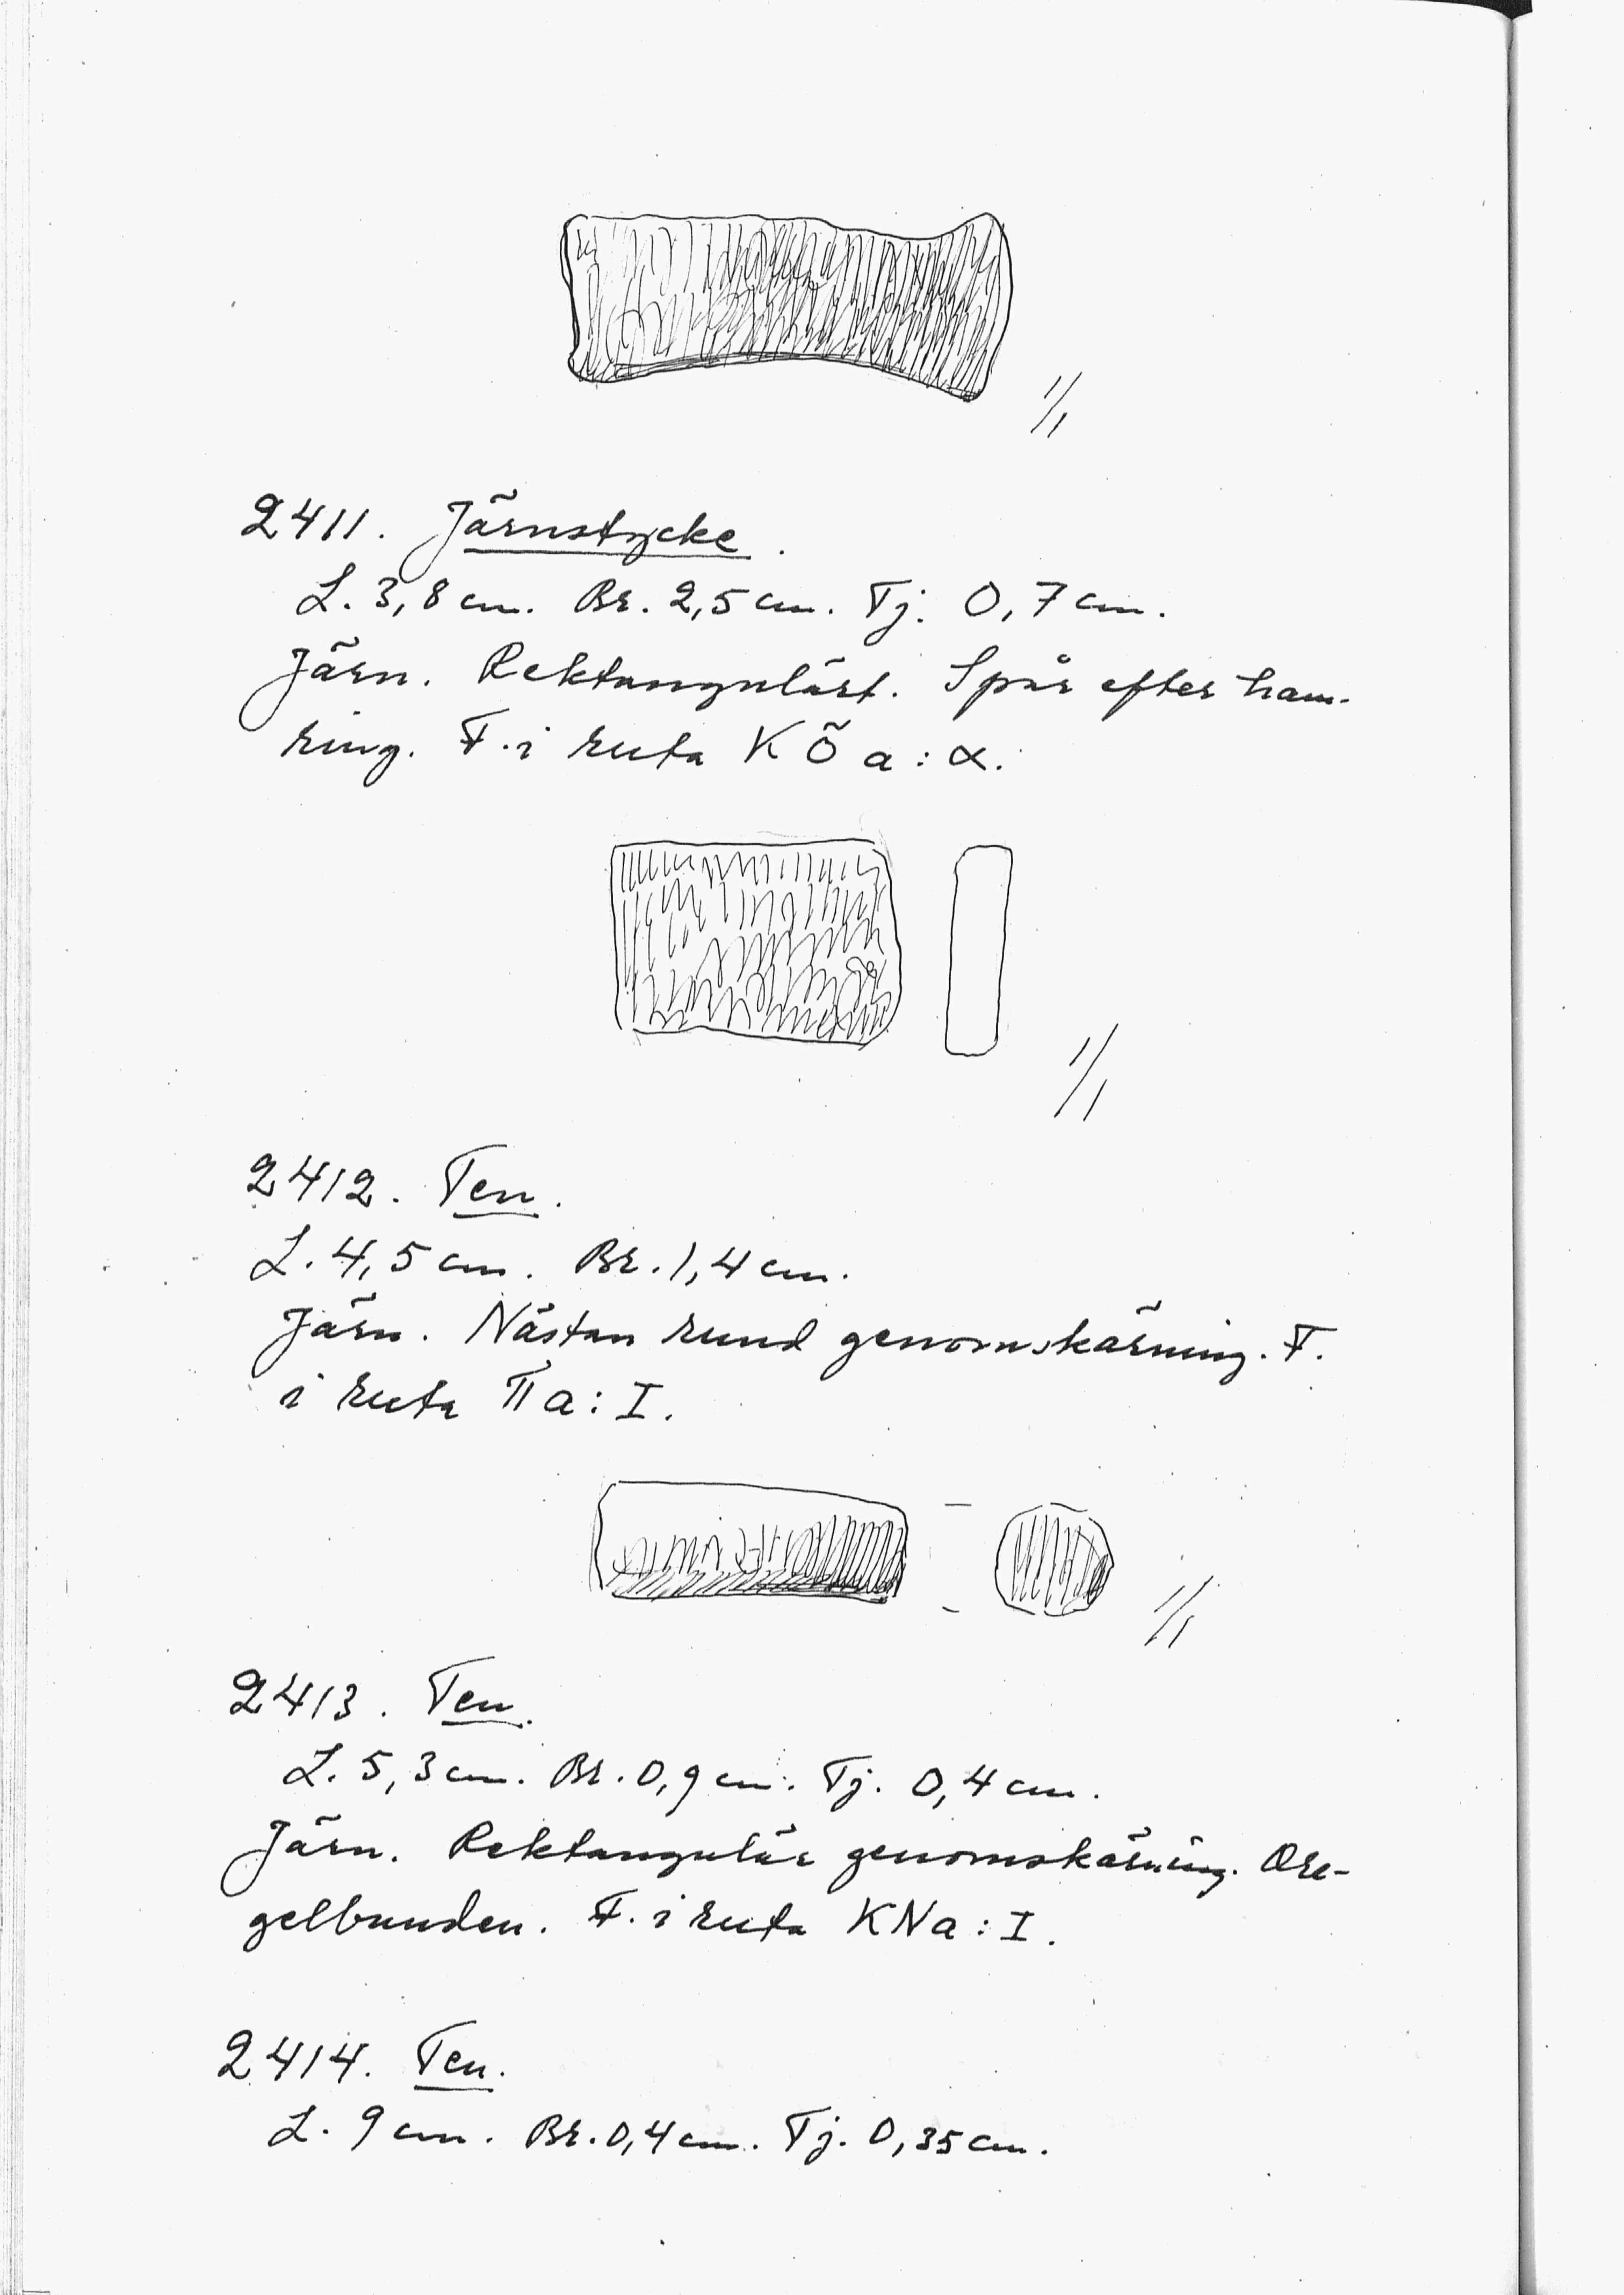 1/1
2411. Järnstycke.
L. 3,8 cm. Br. 2,5 cm. Tj. 0,7 cm.
Järn. Rektangulärt. Spår efter ham-
ring. F. i ruta KÖa:α.
1/1
2412. Ten.
L. 4,5 cm. Br. 1,4 cm.
Järn. Nästan rund genomskärning. F.
i ruta Πa:I.
1/1
2413. Ten.
L. 5,3 cm. Br. 0,9 cm. Tj. 0,4 cm.
Järn. Rektangulär genomskärning. Ore-
gelbunden. F. i ruta KNa:I.
2414. Ten.
L. 9 cm. Br. 0,4 cm. Tj. 0,35 cm.